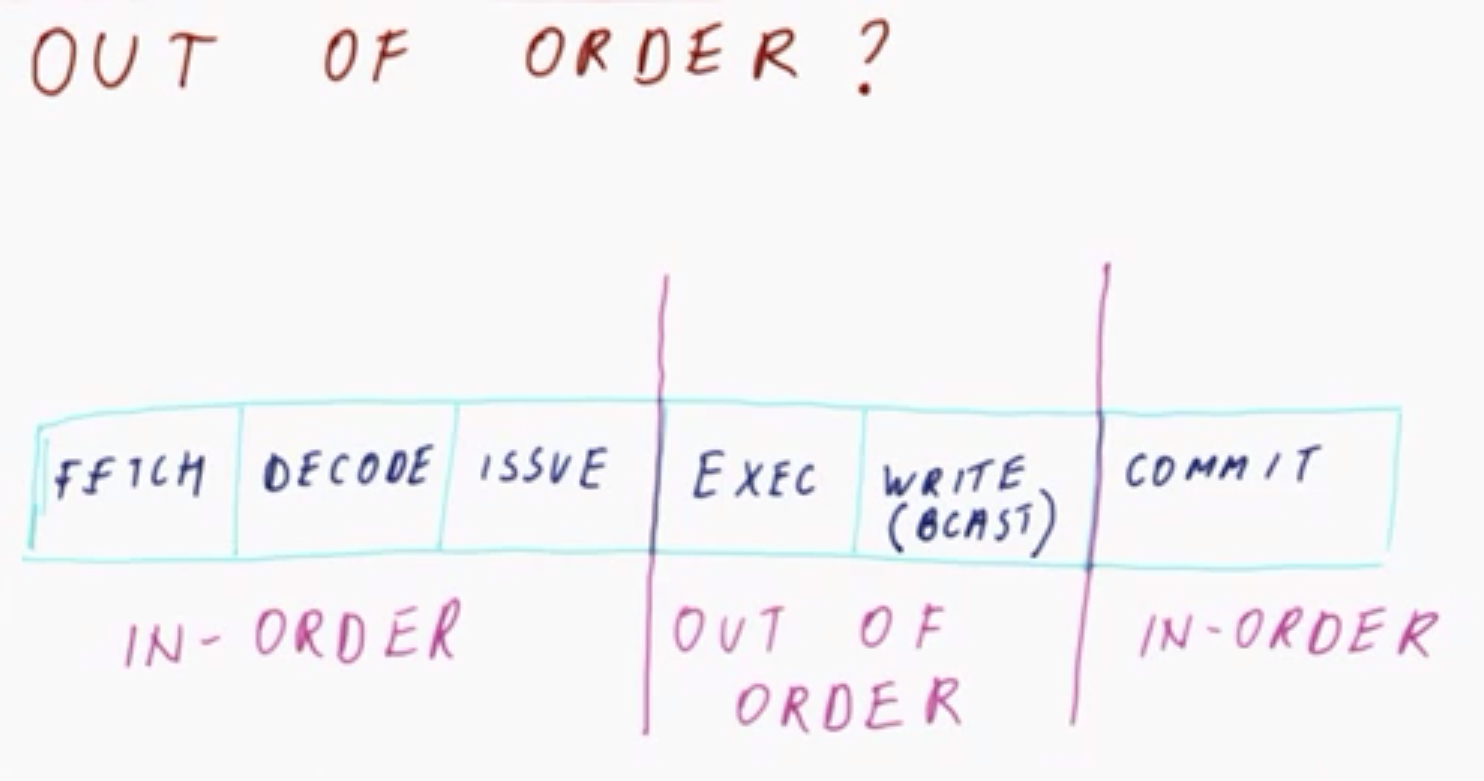 OUT OF ORDER?
FETCH DECODE ISSUE EXEC WRITE (BCAST) COMMIT
IN-ORDER OUT OF ORDER IN-ORDER